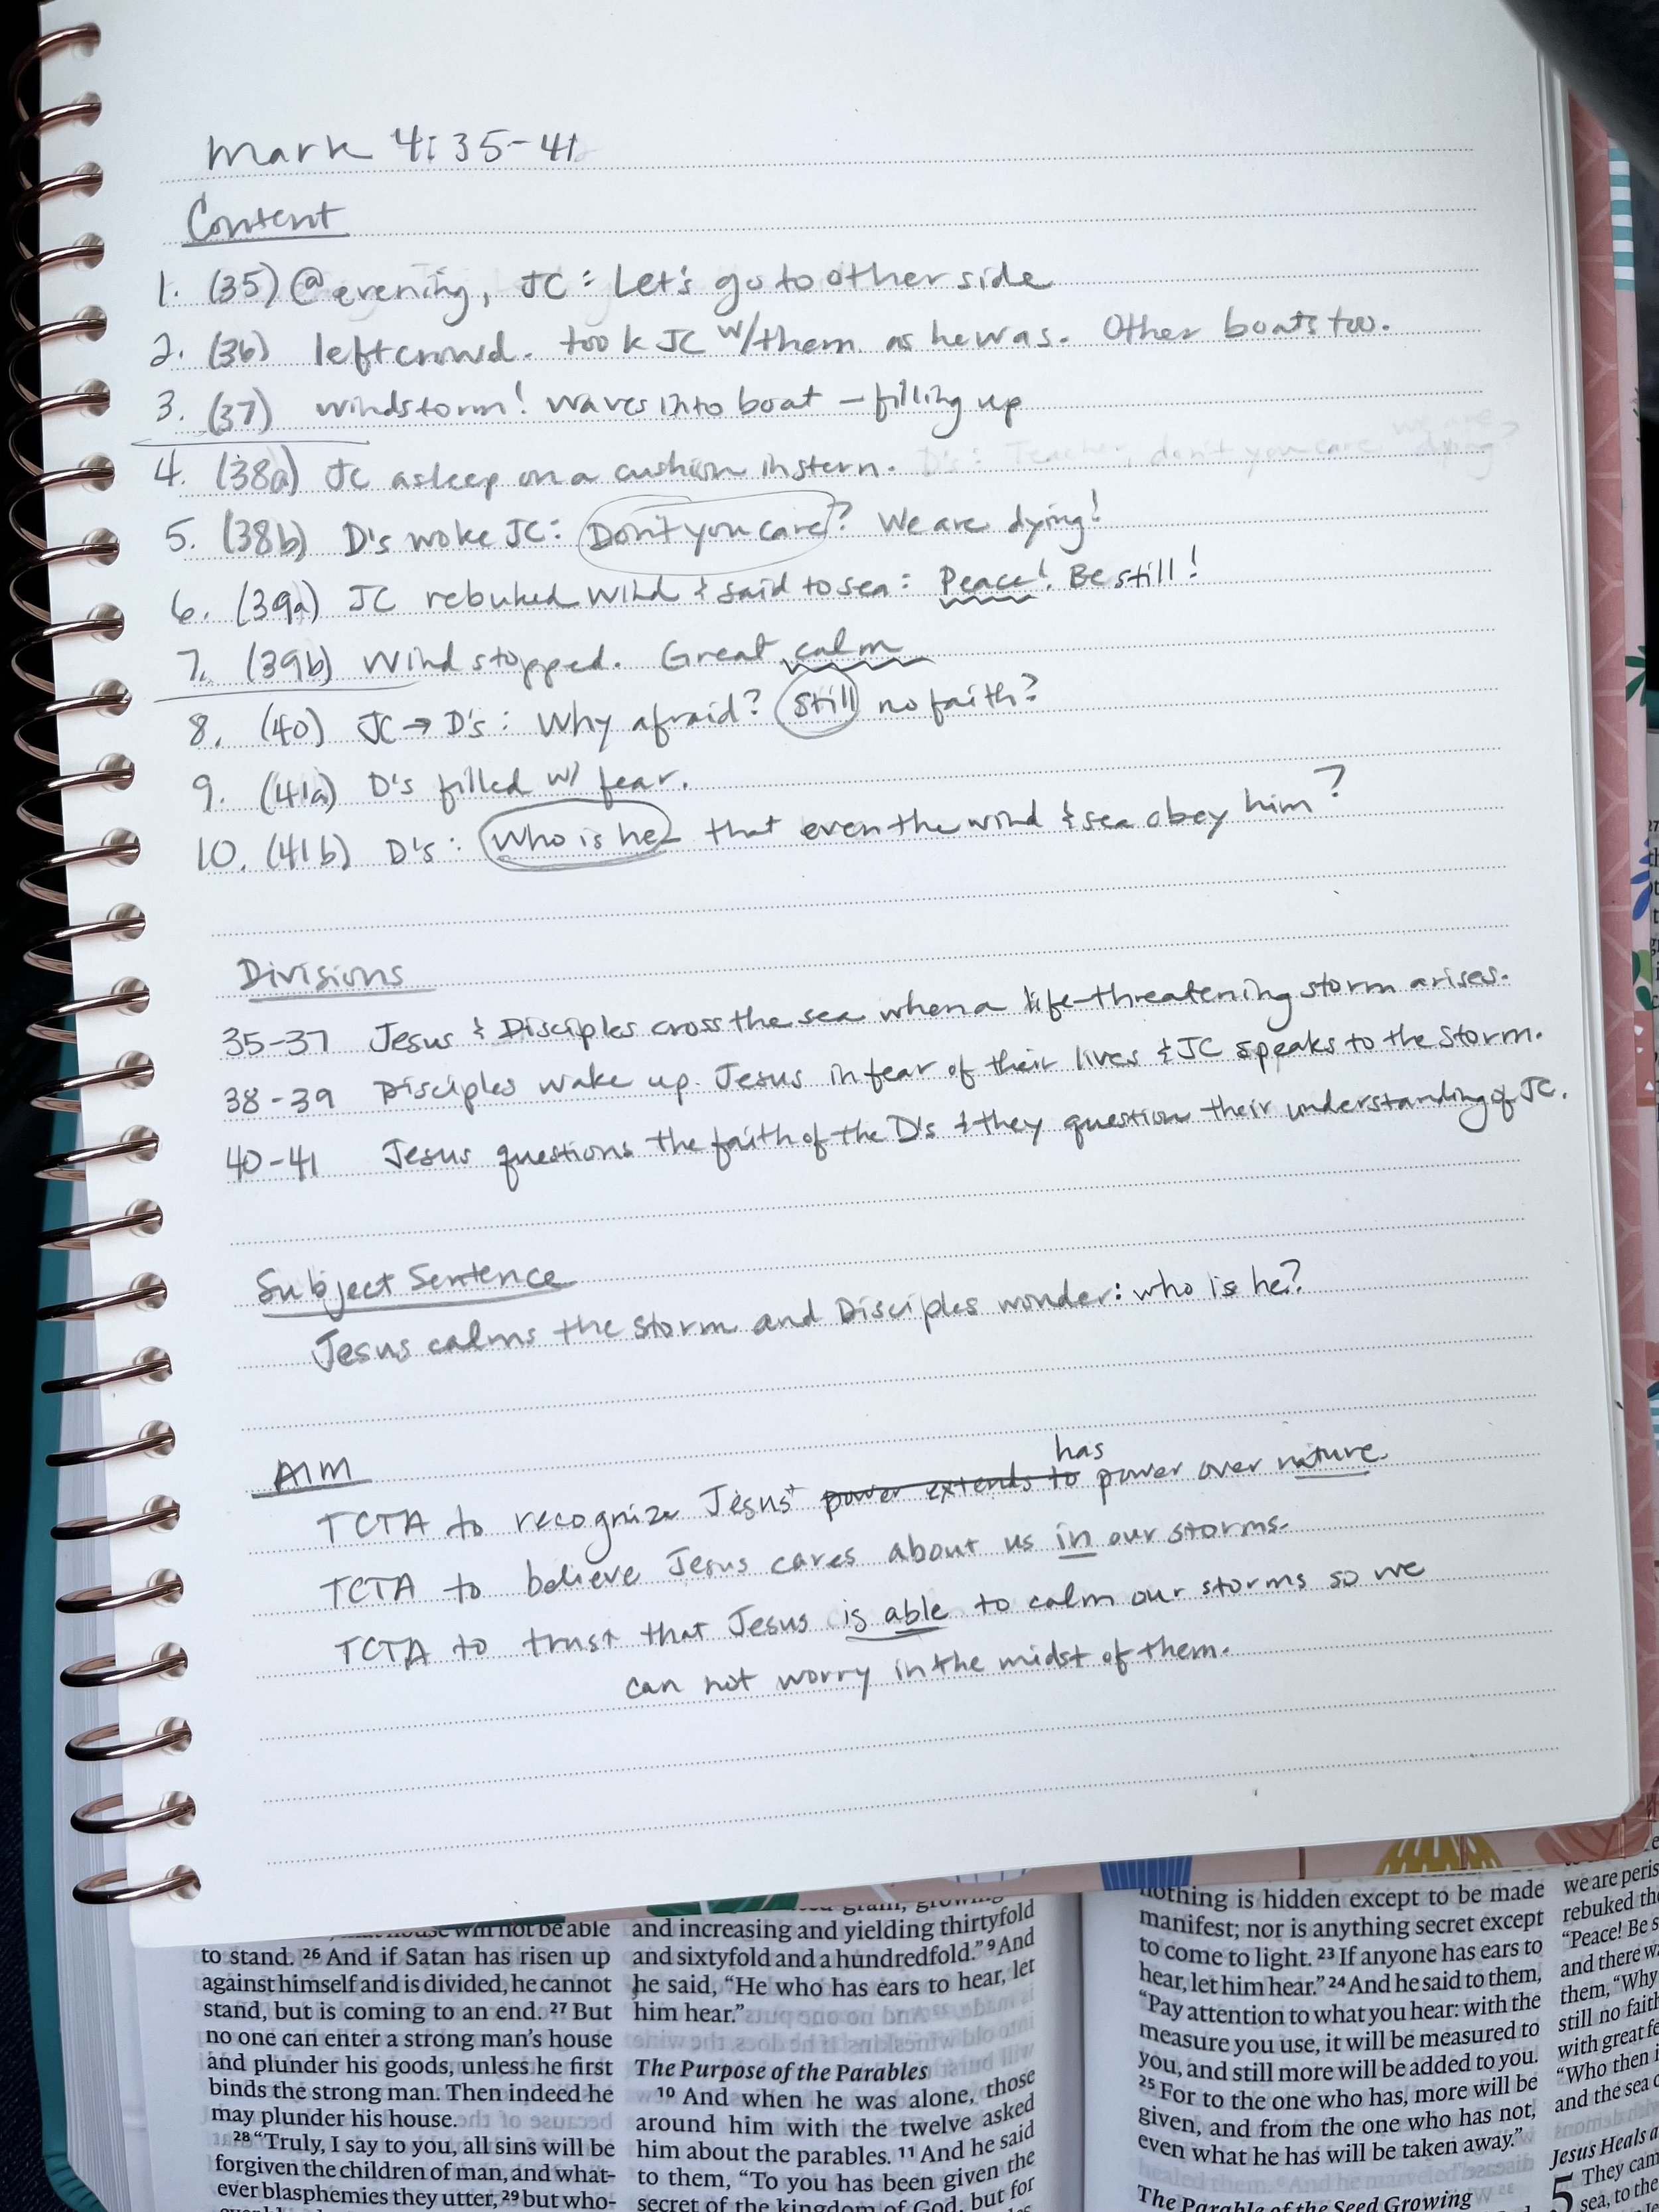 Mark 4:35-41
Content
1. (35) @ evening, JC: Let's go to other side
2. (36) left crowd. took JC w/them as he was. Other boats too.
3. (37) windstorm! waves into boat – filling up
4. (38a) JC asleep on a cushion in stern. D's: Teacher, don't you care we are dying?
5. (38b) D's woke JC: Don't you care? We are dying!
6. (39a) JC rebuked wind & said to sea: Peace! Be still!
7. (39b) Wind stopped. Great calm
8. (40) JC → D's: Why afraid? Still no faith?
9. (41a) D's filled w/ fear.
10. (41b) D's: Who is he that even the wind & sea obey him?
Divisions
35-37 Jesus & Disciples cross the sea when a life-threatening storm arises.
38-39 Disciples wake up Jesus in fear of their lives & JC speaks to the storm.
40-41 Jesus questions the faith of the D's & they question their understanding of JC.
Subject Sentence
Jesus calms the storm and Disciples wonder: who is he?
AIM
TCTA to recognize Jesus' power extends to has power over nature.
TCTA to believe Jesus cares about us in our storms.
TCTA to trust that Jesus is able to calm our storms so we
can not worry in the midst of them.
will not be able
to stand. 26 And if Satan has risen up
against himself and is divided, he cannot
stand, but is coming to an end. 27 But
no one can enter a strong man's house
and plunder his goods, unless he first
binds the strong man. Then indeed he
may plunder his house.
28 "Truly, I say to you, all sins will be
forgiven the children of man, and what-
ever blasphemies they utter, 29 but who-
and increasing and yielding thirtyfold
and sixtyfold and a hundredfold." 9 And
he said, "He who has ears to hear, let
him hear."
The Purpose of the Parables
10 And when he was alone, those
around him with the twelve asked
him about the parables. 11 And he said
to them, "To you has been given the
secret of the kingdom of God, but for
nothing is hidden except to be made
manifest; nor is anything secret except
to come to light. 23 If anyone has ears to
hear, let him hear." 24 And he said to them,
"Pay attention to what you hear: with the
measure you use, it will be measured to
you, and still more will be added to you.
25 For to the one who has, more will be
given, and from the one who has not,
even what he has will be taken away."
The Parable of the Seed Growing
we are peris
rebuked the
"Peace! Be s
and there w
them, "Why
still no faith
with great fe
"Who then i
and the sea o
Jesus Heals a
5 They cam
sea, to the